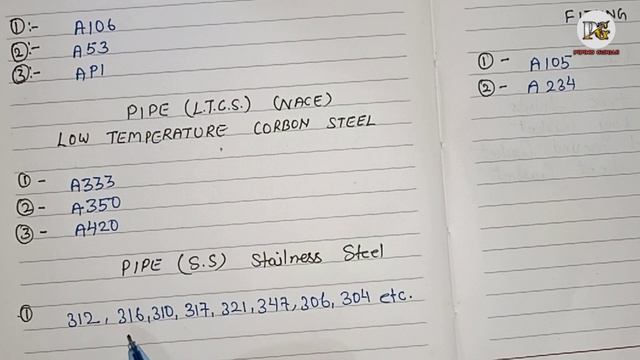 ①:- A106
②:- A53
③:- API
PIPE (L.T.C.S.) (NACE)
LOW TEMPERATURE CORBON STEEL
①- A333
②- A350
③- A420
PIPE (S.S) Stailness Steel
① 312, 316, 310, 317, 321, 347, 306, 304 etc.
①- A105
②- A234